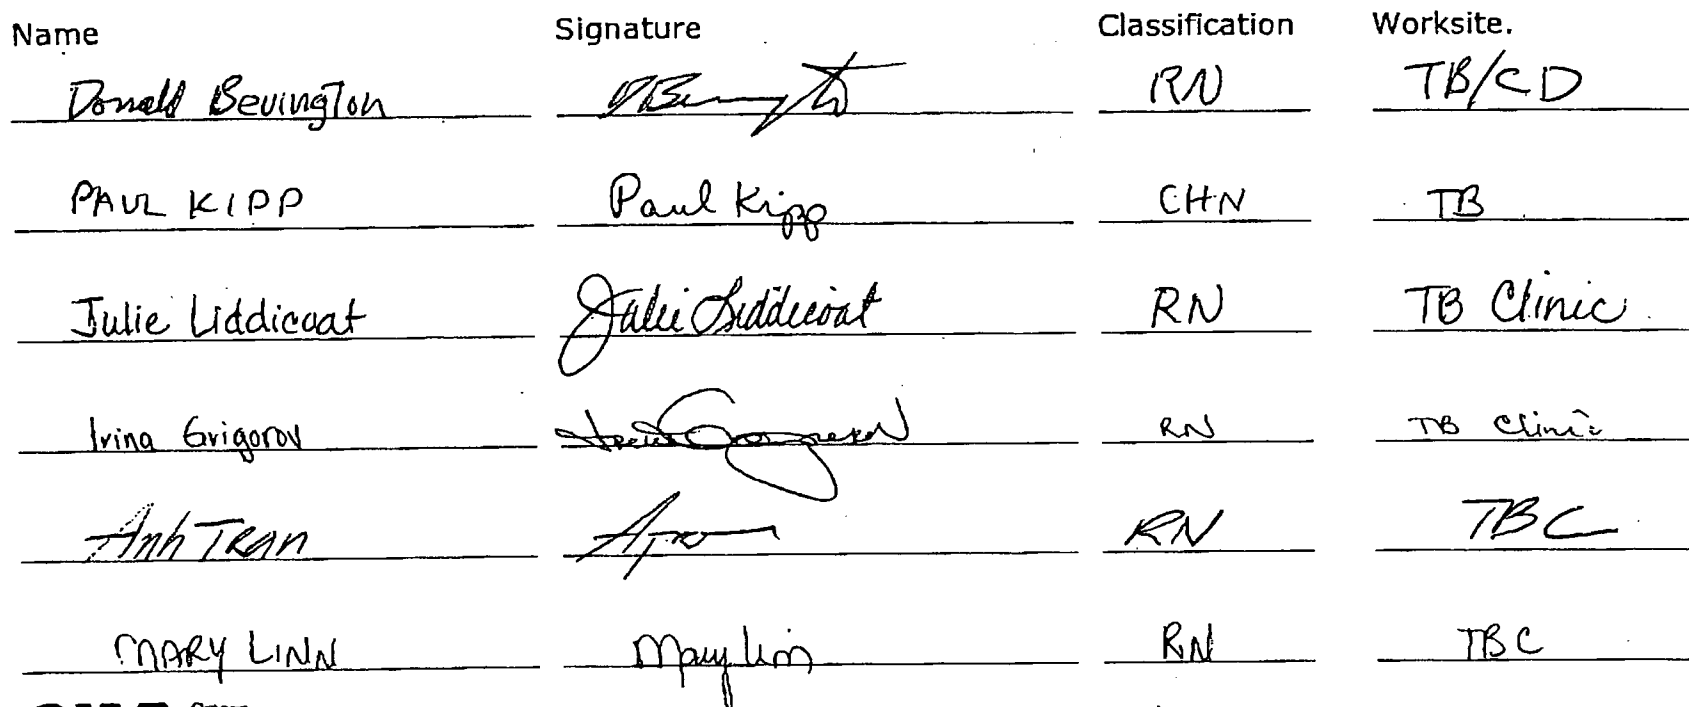 Name Signature Classification Worksite.
Donald Bevington RN TB/CD
PAUL KIPP Paul Kipp CHN TB
Julie Liddicoat Julie Liddicoat RN TB Clinic
Irina Grigorov RN TB Clinic
Anh Tran RN TBC
MARY LINN Mary Linn RN TBC